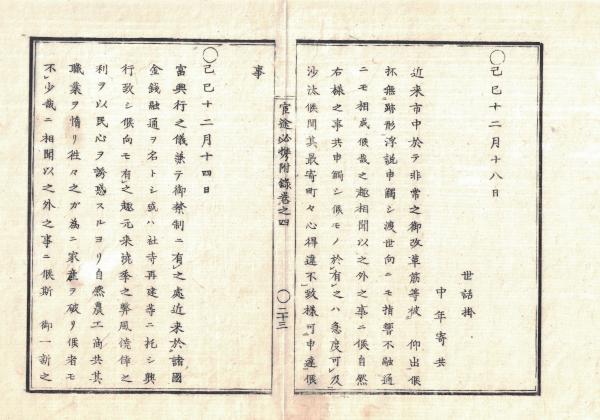 〇己巳十二月十八日
世話掛
中年寄共
近来市中於テ非常之御改革筋等被　仰出候
抔無跡形浮説申觸シ渡世向ニモ指響不融通
ニモ相成候哉之趣相聞以之外之事ニ候自然
右様之事共申觸シ候モノ於有之ハ急度可及
沙汰候間其最寄町々心得違不致様可申達候
事
官途必携附録巻之四
〇二十三
〇己巳十二月十四日
富興行之儀兼テ御禁制ニ有之處近来於諸國
金錢融通ヲ名トシ或ハ社寺再建等ニ托シ興
行致シ候向モ有之趣元来澆季之弊風僥倖之
利ヲ以民心ヲ誘惑スルヨリ自然農工商共其
職業ヲ惰リ往々之ガ為ニ家産ヲ破リ候者モ
不少哉ニ相聞以之外之事ニ候斯　御一新之